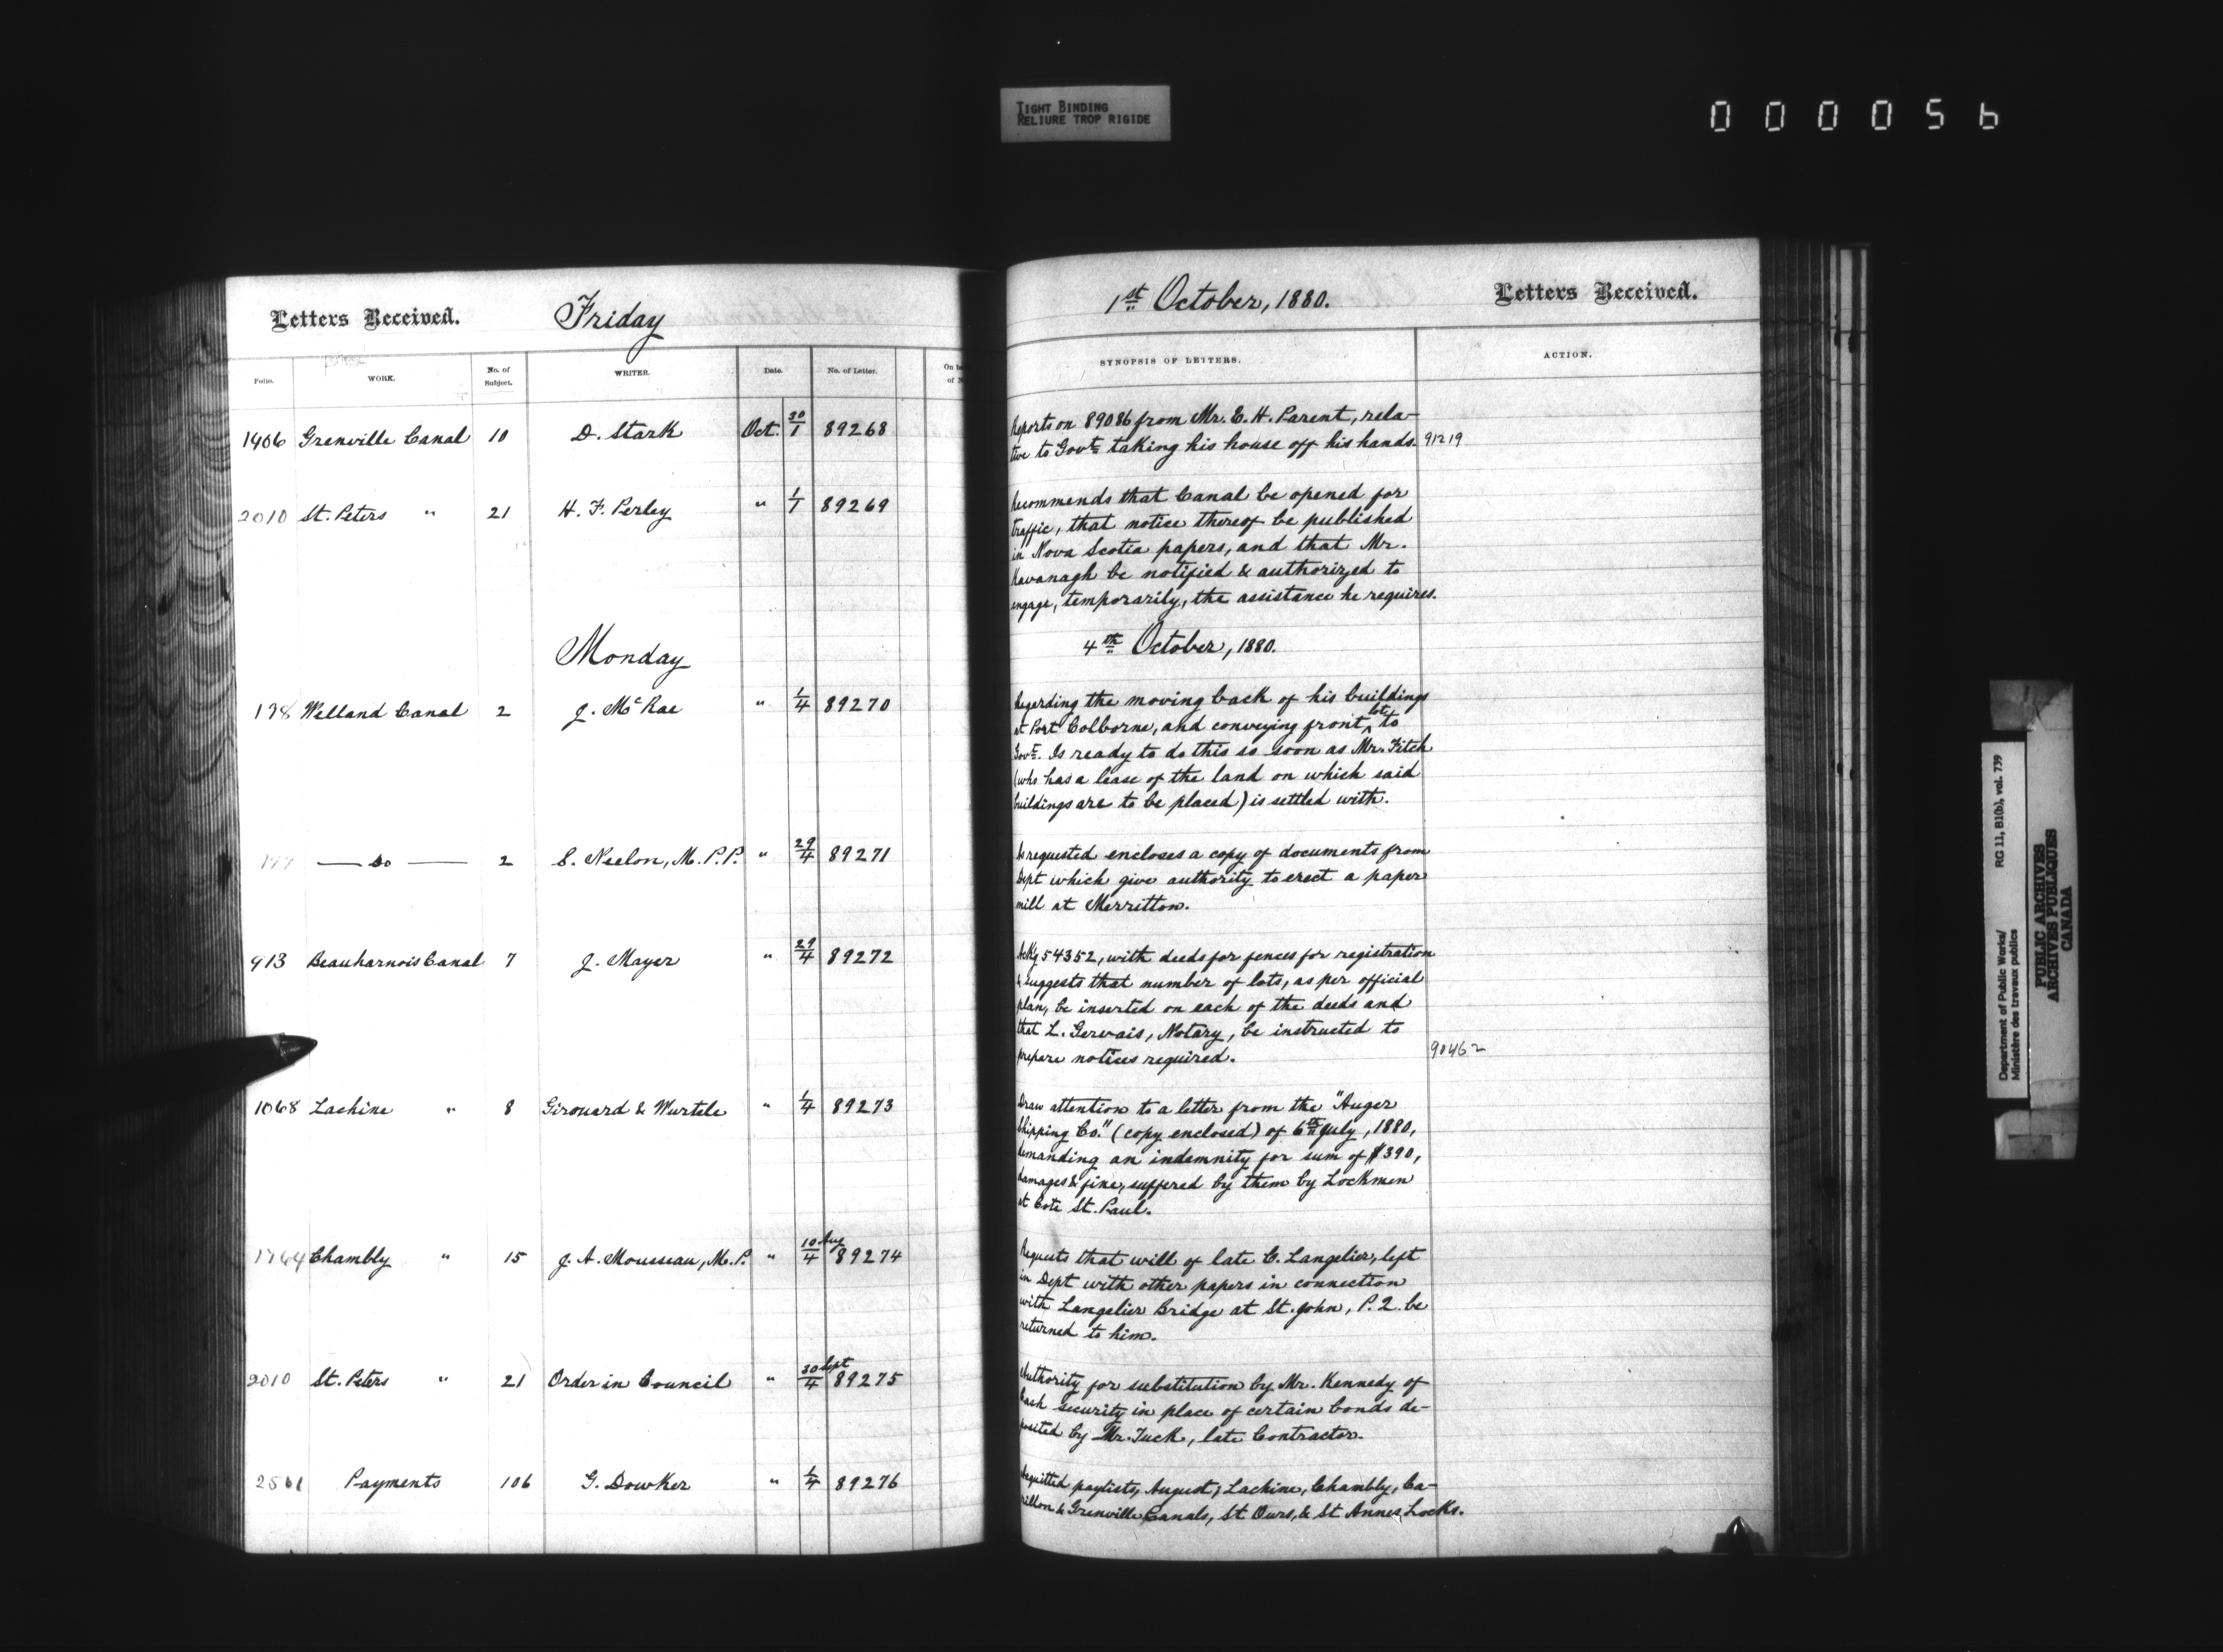 TIGHT BINDING
RELIURE TROP RIGIDE
0000056
Letters Received.
Friday
Folio.
WORK.
No. of Subject.
WRITER.
Date.
No. of Letter.
1406 Grenville Canal 10 D. Stark Oct. 30/1 89268
2010 St. Peters " 21 H. F. Perley " 1/1 89269
Monday
198 Welland Canal 2 J. McRae " 1/4 89270
— do — 2 S. Neelon, M.P.P. " 29/4 89271
913 Beauharnois Canal 7 J. Mayer " 29/4 89272
1068 Lachine " 8 Girouard & Wurtele " 1/4 89273
1764 Chambly " 15 J. A. Mousseau, M.P. " 10 Aug/4 89274
2010 St. Peters " 21 Order in Council " 30 Sept/4 89275
Payments 106 G. Dowker " 1/4 89276
1st October, 1880.
Letters Received.
SYNOPSIS OF LETTERS.
ACTION.
Reports on 89086 from Mr. E. H. Parent, rela-
tive to Govt taking his house off his hands. 91219
Recommends that Canal be opened for
traffic, that notice thereof be published
in Nova Scotia papers, and that Mr.
Kavanagh be notified & authorized to
engage, temporarily, the assistance he requires.
4th October, 1880.
Regarding the moving back of his buildings
at Port Colborne, and conveying front lot to
Govt. Is ready to do this so soon as Mr. Fitch
(who has a lease of the land on which said
buildings are to be placed) is settled with.
As requested encloses a copy of documents from
Dept which give authority to erect a paper
mill at Merritton.
Ackg 54352, with deeds for fences for registration
& suggests that number of lots, as per official
plan, be inserted on each of the deeds and
that L. Gervais, Notary, be instructed to
prepare notices required. 90462
Draw attention to a letter from the "Auger
Shipping Co." (copy enclosed) of 6th July, 1880,
demanding an indemnity for sum of $390,
damages & fine, suffered by them by Lockmen
at Cote St. Paul.
Requests that will of late C. Langelier, left
in Dept with other papers in connection
with Langelier Bridge at St. John, P.Q. be
returned to him.
Authority for substitution by Mr. Kennedy of
Cash security in place of certain bonds de-
posited by Mr. Tuck, late Contractor.
Acquitted paylists, August, Lachine, Chambly, Ca-
rillon & Grenville Canals, St Ours, & St Annes Locks.
Department of Public Works/ RG 11, B1(b), vol. 739
Ministère des travaux publics
PUBLIC ARCHIVES
ARCHIVES PUBLIQUES
CANADA